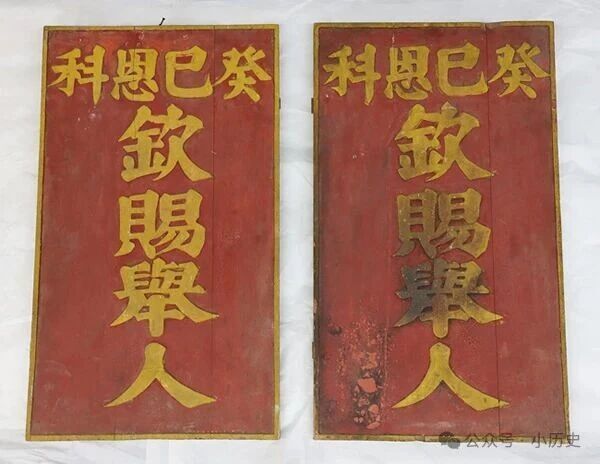 癸巳恩科
欽賜舉人
癸巳恩科
欽賜舉人
公众号·小历史